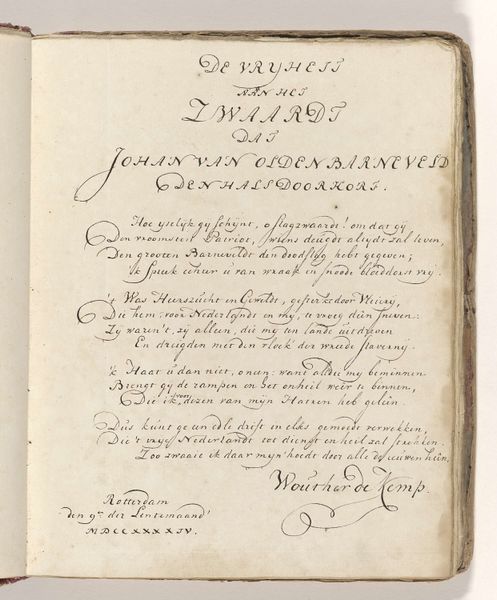 De Vryheit
aan het
Zwaardt
dat
Johan van Oldenbarneveld
den hals doorkort.
Hoe yselyk gy schynt, o slagzwaardt! om dat gy
Den vroomsten Patriot, wiens deugdt altydt zal leven,
Den grooten Barneveldt den doodslag hebt gegeven;
Ik spreek echter u van wraak en snoode bloeddorst vry.
't Was Heerszucht en Geweldt, gesterkt door Vleiery,
Die hem voor Nederlandt en my, te vroeg dêen sneven:
Zy waren't, zy alleen, die my ten lande uitdreven
En dreigden met den vloek der wreede slaverny.
'k Haat u dan niet, o neen: want al die my beminnen
Brengt gy de rampen en het onheil weêr te binnen,
Die ik voor dezen van myn Haters heb geleên.
Dus kunt ge een edle drift in elks gemoedt verwekken,
Die 't vrye Nederlandt tot dienst en heil zal strekken.
Zoo zwaaie ik daar myn' hoedt door alle de eeuwen heên.
Wouther de Kemp.
Rotterdam
den 9en der Lentemaand
MDCCXXXXIV.